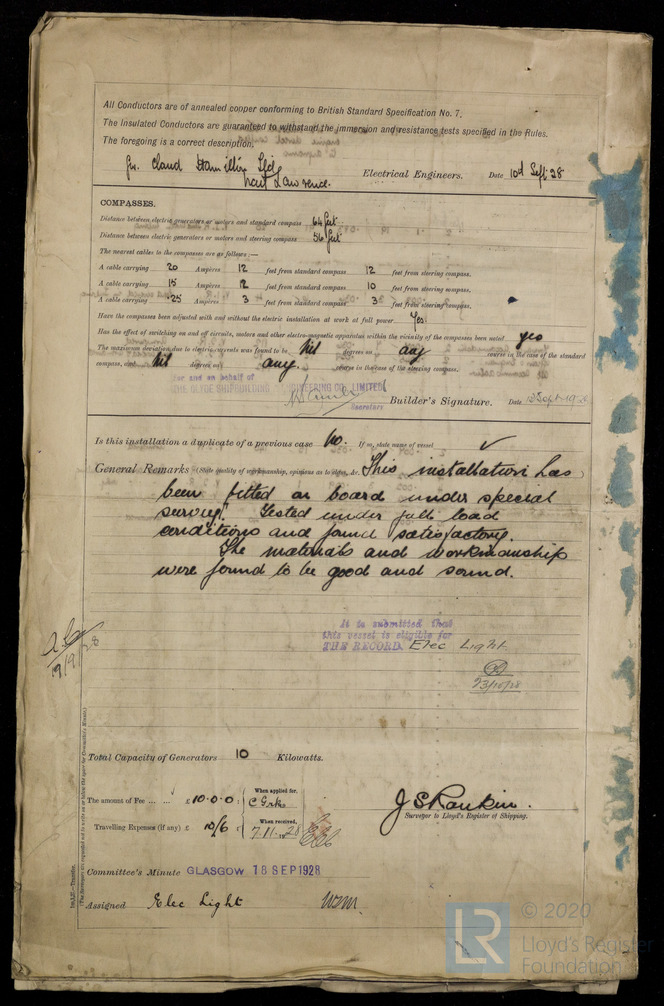 All Conductors are of annealed copper conforming to British Standard Specification No. 7.
The Insulated Conductors are guaranteed to withstand the immersion and resistance tests specified in the Rules.
The foregoing is a correct description.
Claud Hamilton Ltd
Electrical Engineers. Date 10th Sept 28
COMPASSES.
Distance between electric generators or motors and standard compass 64 feet
Distance between electric generators or motors and steering compass 56 feet
The nearest cables to the compasses are as follows:—
A cable carrying 20 Ampères 12 feet from standard compass 12 feet from steering compass.
A cable carrying 15 Ampères 12 feet from standard compass 10 feet from steering compass.
A cable carrying .25 Ampères 3 feet from standard compass 3 feet from steering compass.
Have the compasses been adjusted with and without the electric installation at work at full power Yes.
Has the effect of switching on and off circuits, motors and other electro-magnetic apparatus within the vicinity of the compasses been noted yes
The maximum deviation due to electric currents was found to be Nil degrees on any course in the case of the standard
compass, and Nil degrees on any course in the case of the steering compass.
for and on behalf of
THE CLYDE SHIPBUILDING ENGINEERING CO. LIMITED
Secretary
Builder's Signature. Date
Is this installation a duplicate of a previous case No. If so, state name of vessel
General Remarks (State quality of workmanship, opinions as to class, &c. This installation has
been fitted on board under special
survey. Tested under full load
conditions and found satisfactory.
The materials and workmanship
were found to be good and sound.
It is submitted that
this vessel is eligible for
THE RECORD. Elec Light.
23/10/28
19/9/28
Total Capacity of Generators 10 Kilowatts.
The amount of Fee ... ... £ 10-0-0
When applied for,
Travelling Expenses (if any) £ 10/6
When received,
7.11.1928
J S Rankin.
Surveyor to Lloyd's Register of Shipping.
Committee's Minute GLASGOW 18 SEP 1928
Assigned Elec Light
© 2020
LR
Lloyd's Register
Foundation